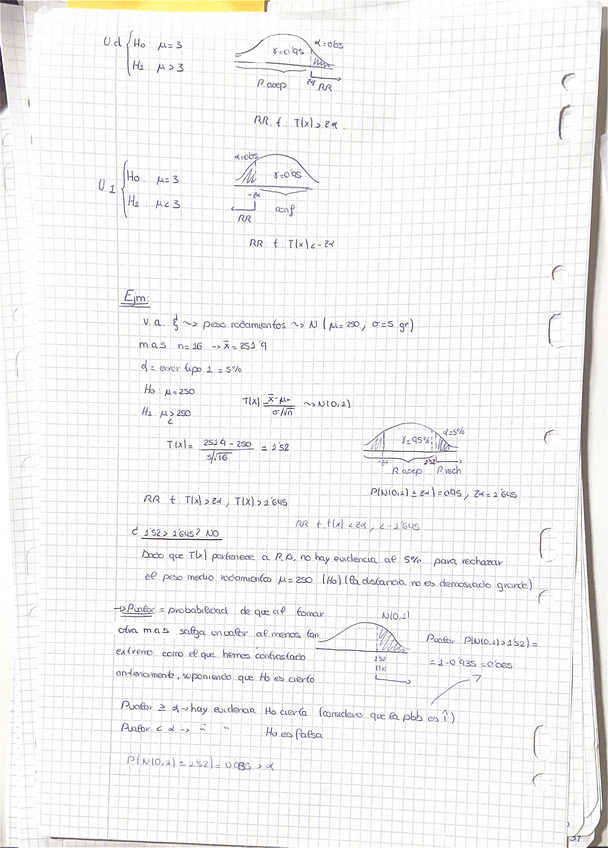 U.d { H0 μ=3
H1 μ>3
α=0'05
γ=0'95
R acep zα RR
RR t. T(x)>zα.
U.I { H0 μ=3
H1 μ<3
α=0'05
γ=0'95
-zα
RR conf
RR t. T(x)<-zα
Ejm:
v.a. ξ ~> peso rodamientos ~> N(μ=250, σ=5 gr)
m.a.s n=16 → x̄=251'9
α = error tipo 1 = 5%
H0: μ=250
H1: μ>250
<
T(x)= x̄-μ0 / σ/√n ~> N(0,1)
T(x)= 251'9 - 250 / 5/√16 = 1'52
γ=95% α=5%
-zα 1'52
R acep R rech
P(N(0,1) ≤ zα)=0'95, zα=1'645
RR t. T(x)>zα, T(x)>1'645
RR t. T(x)<zα, <-1'645
¿ 1'52>1'645? NO
Dado que T(x) pertenece a R.A, no hay evidencia al 5% para rechazar
el peso medio rodamientos μ=250 (H0) (la distancia no es demasiado grande)
→ Pvalor = probabilidad de que al tomar
otra m.a.s salga un valor al menos tan
extremo como el que hemos contrastado
anteriormente, suponiendo que H0 es cierto
N(0,1)
1'52
T(x)
Pvalor P(N(0,1)>1'52)=
=1-0'935=0'065
Pvalor ≥ α → hay evidencia H0 cierta (considero que la pbb es ↑)
Pvalor < α → " " H0 es falsa
P(N(0,1) ≥ 1'52)= > α